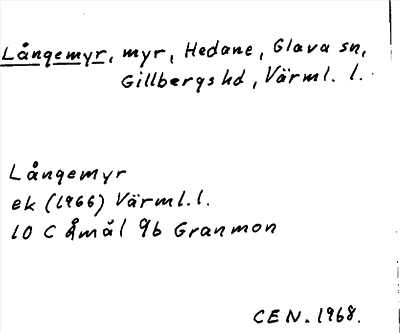 Långemyr, myr, Hedane, Glava sn,
Gillbergs hd, Värml. l.
Långemyr
ek (1966) Värml. l.
10 C Åmål 9b Granmon
CEN. 1968.